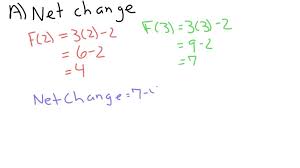 A) Net change
F(2) = 3(2)-2
= 6-2
= 4
F(3) = 3(3)-2
= 9-2
= 7
Net Change = 7-